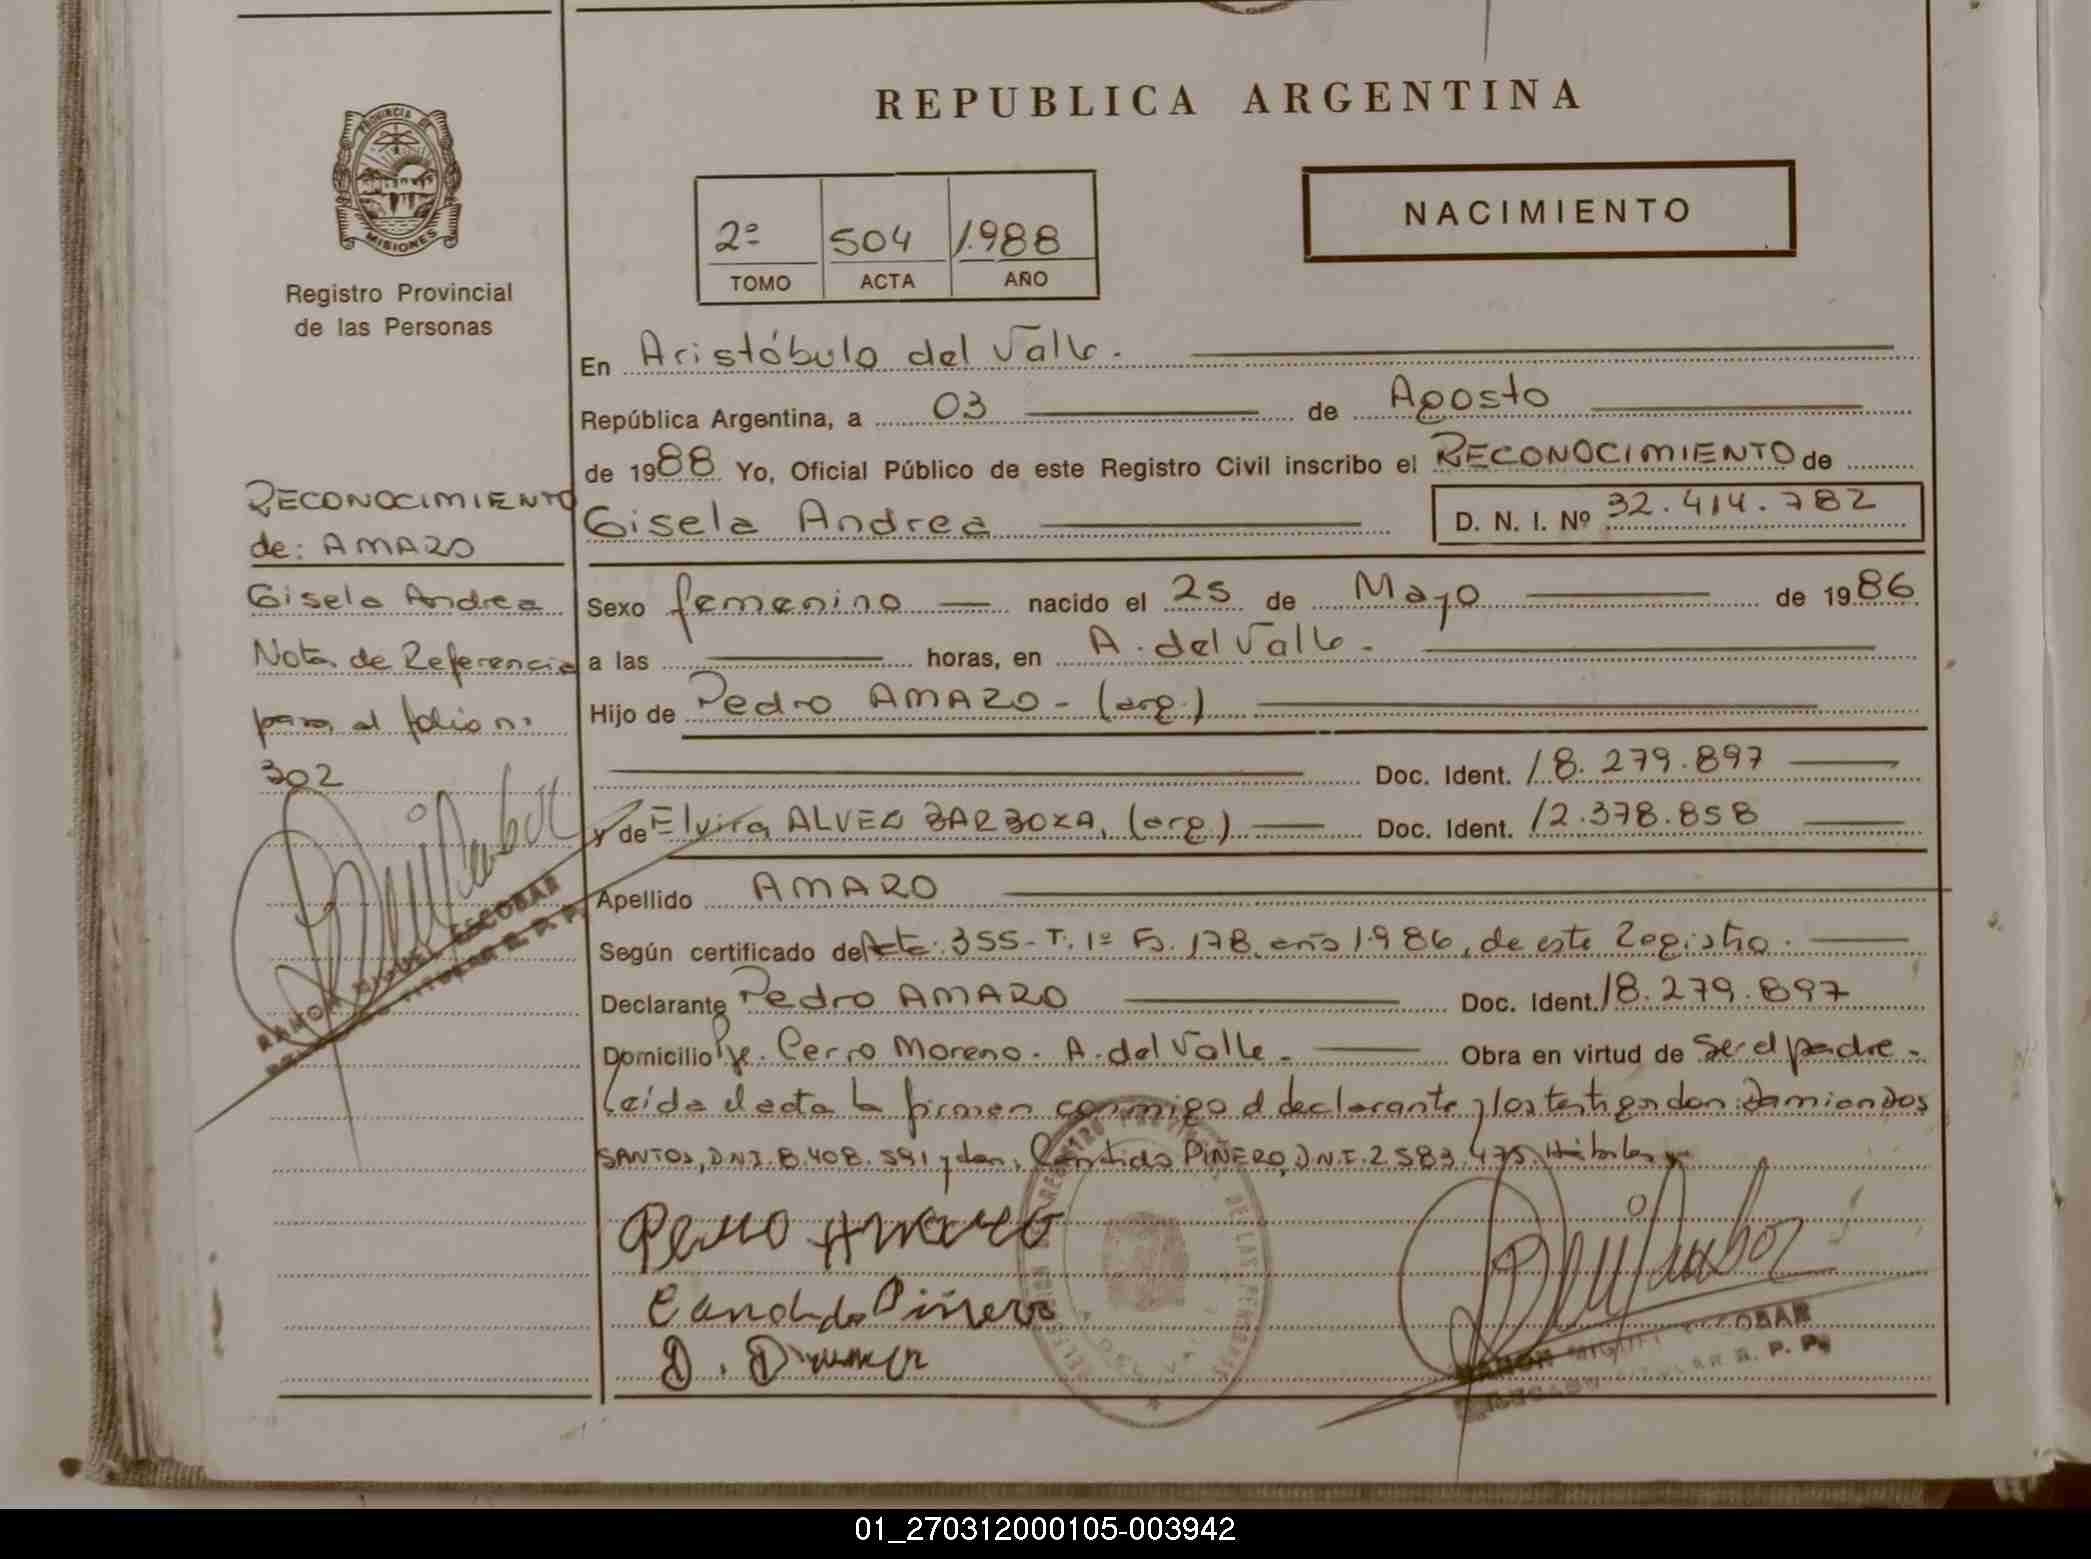 REPUBLICA ARGENTINA
PROVINCIA DE
MISIONES
Registro Provincial
de las Personas
2º 504 1.988
TOMO ACTA AÑO
NACIMIENTO
En Aristóbulo del Valle.
República Argentina, a 03 de Agosto
de 1988 Yo, Oficial Público de este Registro Civil inscribo el RECONOCIMIENTO de
Gisela Andrea D. N. I. Nº 32.414.782
Sexo femenino nacido el 25 de Mayo de 1986
a las horas, en A. del Valle.
Hijo de Pedro AMARO - (arg.)
Doc. Ident. 18.279.897
y de Elvira ALVEZ BARBOZA, (arg.) Doc. Ident. 12.378.858
Apellido AMARO
Según certificado de Acta: 355-T. 1º Fº. 178, año 1.986, de este Registro.
Declarante Pedro AMARO Doc. Ident. 18.279.897
Domicilio Pje. Cerro Moreno. A. del Valle. Obra en virtud de Ser el padre.
Leída el acta la firman conmigo el declarante y los testigos don: Damian DOS
SANTOS, D.N.I. 8.408.591 y don: Candido PIÑERO, D.N.I. 2.583.475. Hábiles
RECONOCIMIENTO
de: AMARO
Gisela Andrea
Nota de Referencia
para al folio n:
302
RAMON MIGUEL ESCOBAR
Pedro Amaro
Candido Piñero
RAMON MIGUEL ESCOBAR
R. P. P.
01_270312000105-003942